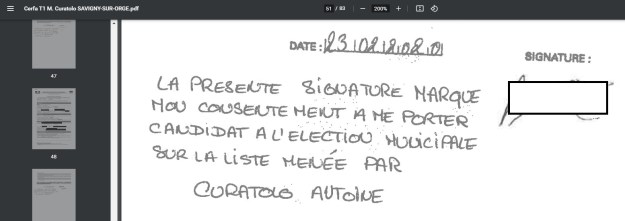 Cerfa T1 M. Curatolo SAVIGNY-SUR-ORGE.pdf
51 / 83
200%
47
48
DATE :
SIGNATURE :
LA PRESENTE SIGNATURE MARQUE
MON CONSENTEMENT A ME PORTER
CANDIDAT A L'ELECTION MUNICIPALE
SUR LA LISTE MENÉE PAR
CURATOLO ANTOINE